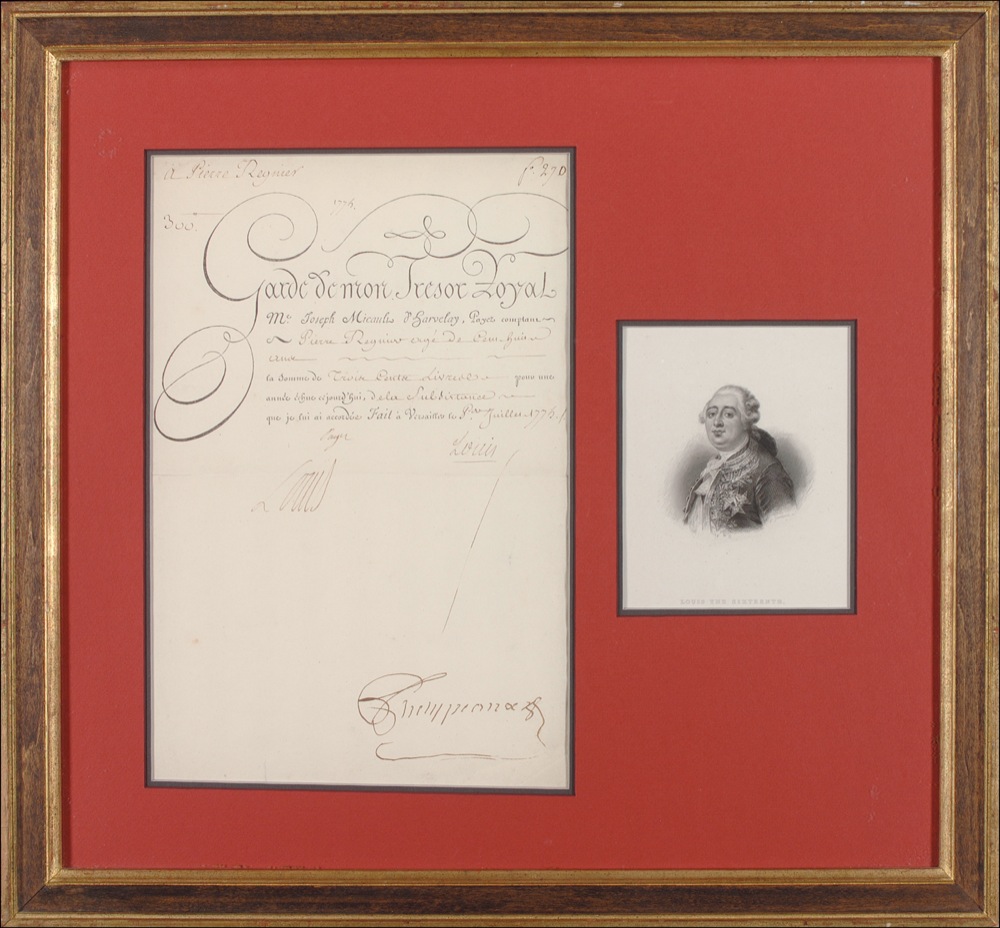 a Pierre Regnier fo. 270
1776.
300.
Garde de mon Tresor Royal
Me. Joseph Micault d'Harvelay, Payez comptant
Pierre Regnier agé de Cent huit
ans
la somme de Trois Cents Livres pour une
année échue cejourd'hui, de la Subsistance
que je lui ai accordée Fait à Versailles le Per. Juillet 1776.
Payez
Louis
Louis
LOUIS THE SIXTEENTH.